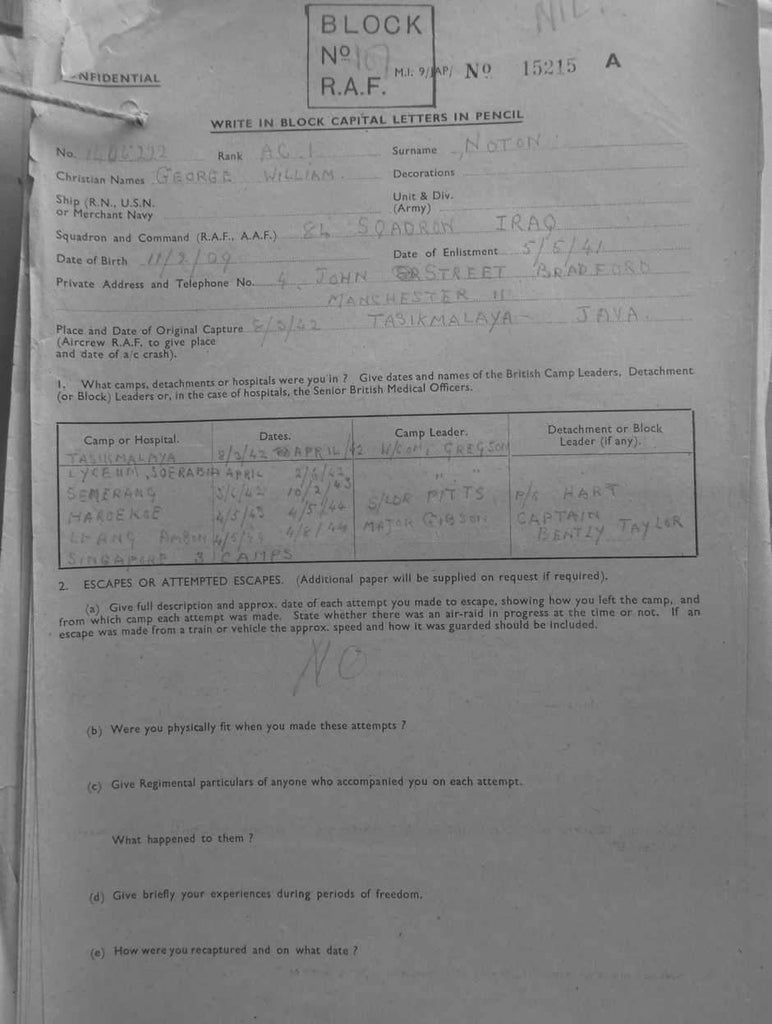 NIL.
BLOCK
No 167
R.A.F.
NFIDENTIAL
M.I. 9/JAP/ No 15215 A
WRITE IN BLOCK CAPITAL LETTERS IN PENCIL
No. Rank AC.1 Surname NOTON.
Christian Names GEORGE WILLIAM. Decorations
Ship (R.N., U.S.N. or Merchant Navy Unit & Div. (Army)
Squadron and Command (R.A.F., A.A.F.) 84 SQADRON IRAQ
Date of Birth 11/2/09 Date of Enlistment 5/5/41
Private Address and Telephone No. 4, JOHN STREET BRADFORD
MANCHESTER 11
Place and Date of Original Capture 8/3/42 TASIKMALAYA - JAVA.
(Aircrew R.A.F. to give place
and date of a/c crash).
1. What camps, detachments or hospitals were you in ? Give dates and names of the British Camp Leaders, Detachment
(or Block) Leaders or, in the case of hospitals, the Senior British Medical Officers.
Camp or Hospital. Dates. Camp Leader. Detachment or Block Leader (if any).
TASIKMALAYA 8/3/42 APRIL/42 W/COM. GREGSON
LYCEUM, SOERABIA APRIL " "
SEMERANG S/LDR PITTS P/O HART
HAROEKOE 4/5/43 4/5/44 MAJOR GIBSON CAPTAIN
LIANG AMBON 4/8/44 BENTLY TAYLOR
SINGAPORE 3 CAMPS
2. ESCAPES OR ATTEMPTED ESCAPES. (Additional paper will be supplied on request if required).
(a) Give full description and approx. date of each attempt you made to escape, showing how you left the camp, and
from which camp each attempt was made. State whether there was an air-raid in progress at the time or not. If an
escape was made from a train or vehicle the approx. speed and how it was guarded should be included.
NO
(b) Were you physically fit when you made these attempts ?
(c) Give Regimental particulars of anyone who accompanied you on each attempt.
What happened to them ?
(d) Give briefly your experiences during periods of freedom.
(e) How were you recaptured and on what date ?